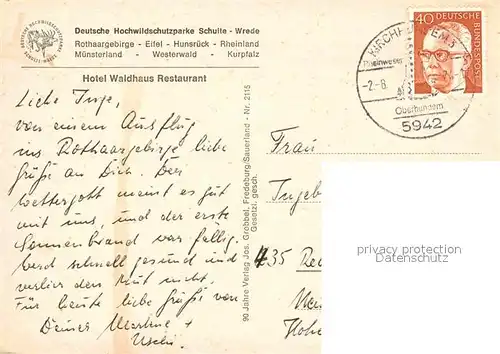 Deutsche Hochwildschutzparke Schulte - Wrede
Rothaargebirge - Eifel - Hunsrück - Rheinland
Münsterland - Westerwald - Kurpfalz
Hotel Waldhaus Restaurant
Liebe Inge,
von einem Ausflug
ins Rothaargebirge liebe
Grüße an Dich. Der
Wettergott meint es gut
mit uns, und der erste
Sonnenbrand war fällig.
Werd schnell gesund und
verlier den Mut nicht.
Für heute liebe Grüße von
Deiner +
Uschi
90 Jahre Verlag Jos. Grobbel, Fredeburg/Sauerland - Nr. 2115
Gesetzl. gesch.
40 DEUTSCHE
BUNDESPOST
KIRCHH
-2.-8.
Oberhundem
5942
Frau
Ingeb
435 Rec
Hohe
privacy protection
watermark